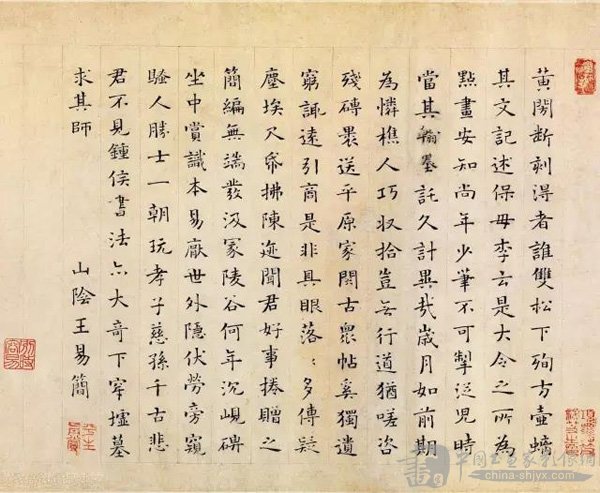 黃閍断刻得者誰雙松下殉方壺螭
其文記述保母李云是大令之所為
點畫安知尚年少筆不可掣從兒時
當其翰墨託久計異哉歲月如前期
為憐樵人巧収拾豈無行道猶嗟咨
殘磚裹送平原家閱古衆帖奚獨遺
窮諏遠引商是非具眼落〻多傳疑
塵埃尺帋拂陳迹聞君好事捲贈之
簡編無端發汲冢陵谷何年沉峴碑
坐中賞識本易厭世外隱伏勞旁窺
騷人勝士一朝玩孝子慈孫千古悲
君不見鍾侯書法亦大奇下宰墟墓
求其師 山陰王易簡
china-shjyx.com